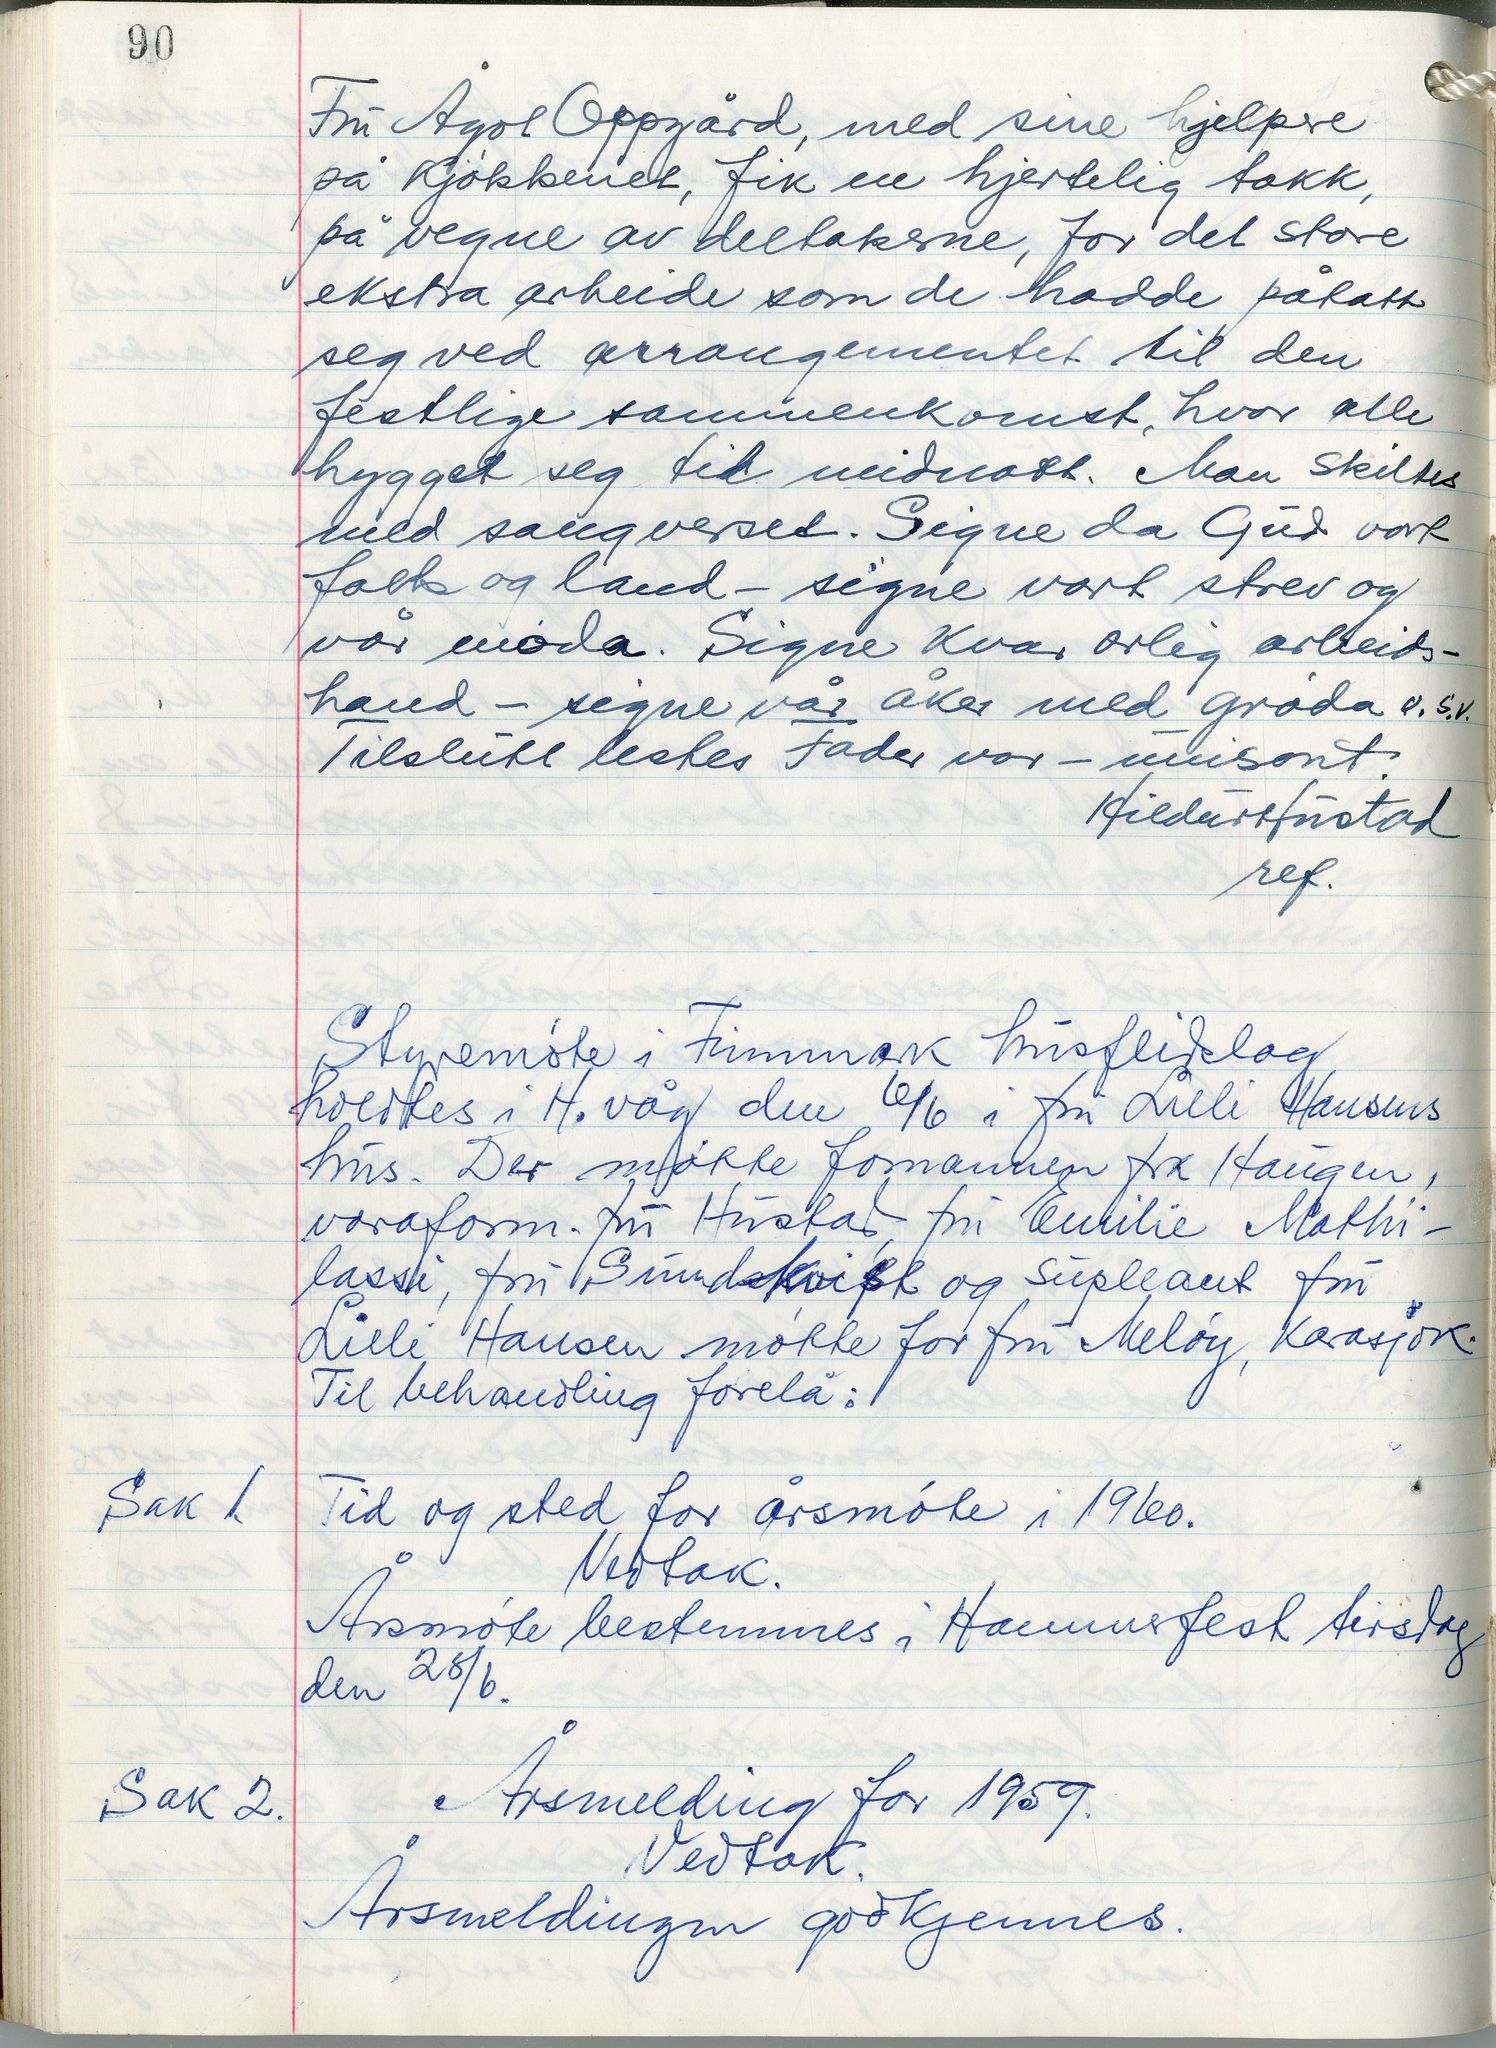 90
Frú Ågot Oppgård, med sine hjelpere
på kjøkkenet, fik en hjertelig takk,
på vegne av deltakerne, for det store
ekstra arbeide som de hadde påtatt
seg ved arrangementet til den
festlige sammenkomst, hvor alle
hygget seg til midnatt. Man skiltes
med sangverset. Signe da Gud vort
folk og land - signe vort strev og
vår møda. Signe kvar ærlig arbeids-
hand - signe vår åker med grøda o.s.v.
Tilslutt lestes Fader vor - unisont.
Hildur Hustad
ref.
Styremøte i Finnmark husflidslag
holdtes i H.våg den 6/6 i fru Lilli Hansens
hus. Der møtte formannen fra Haugen,
varaform. fru Hustad, fru Emilie Mathi-
lassi, fru Sundskvist og supleant fru
Lilli Hansen møtte for fru Meløy, Karasjok.
Til behandling forelå:
Sak 1. Tid og sted for årsmøte i 1960.
Vedtak.
Årsmøte bestemmes i Hammerfest tirsdag
den 28/6.
Sak 2. Årsmelding for 1959.
Vedtak.
Årsmeldingen godkjennes.